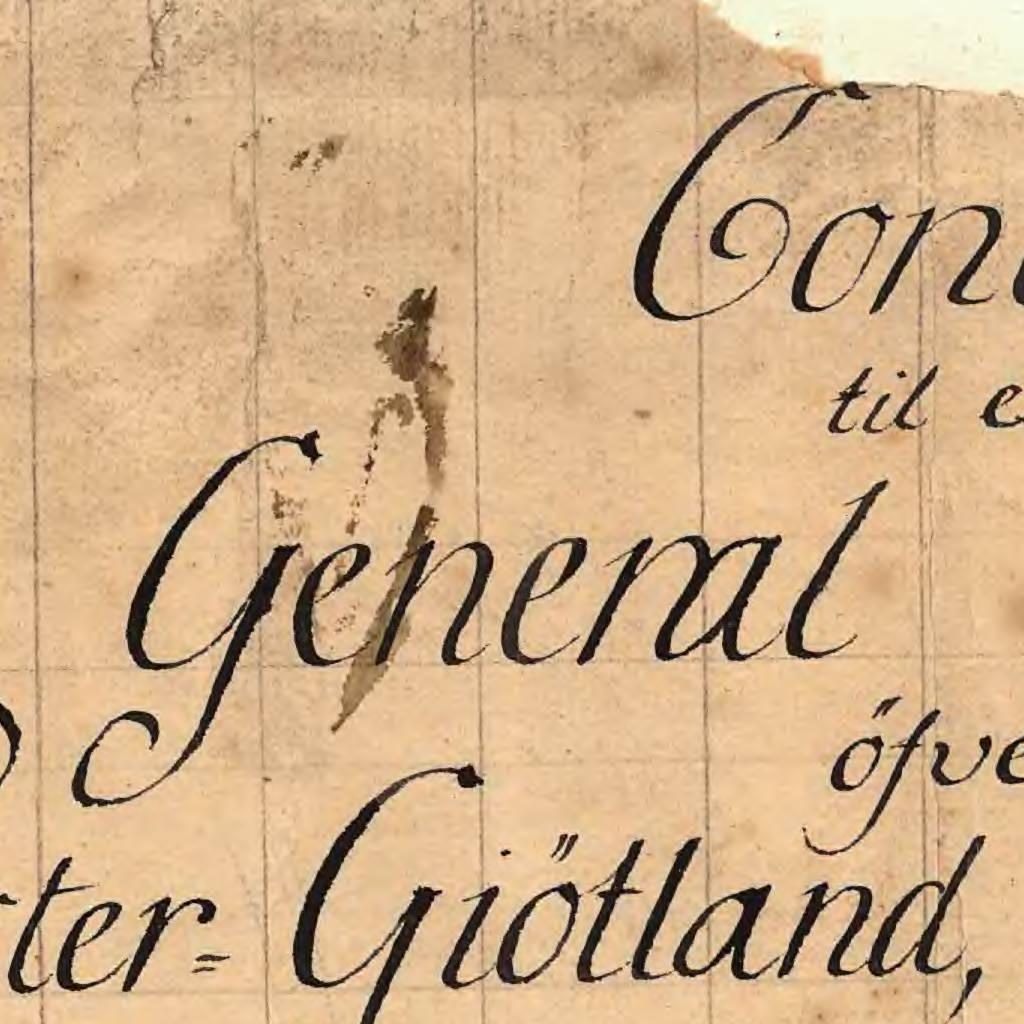 Con
til e
General
öfve
ter= Giötland,